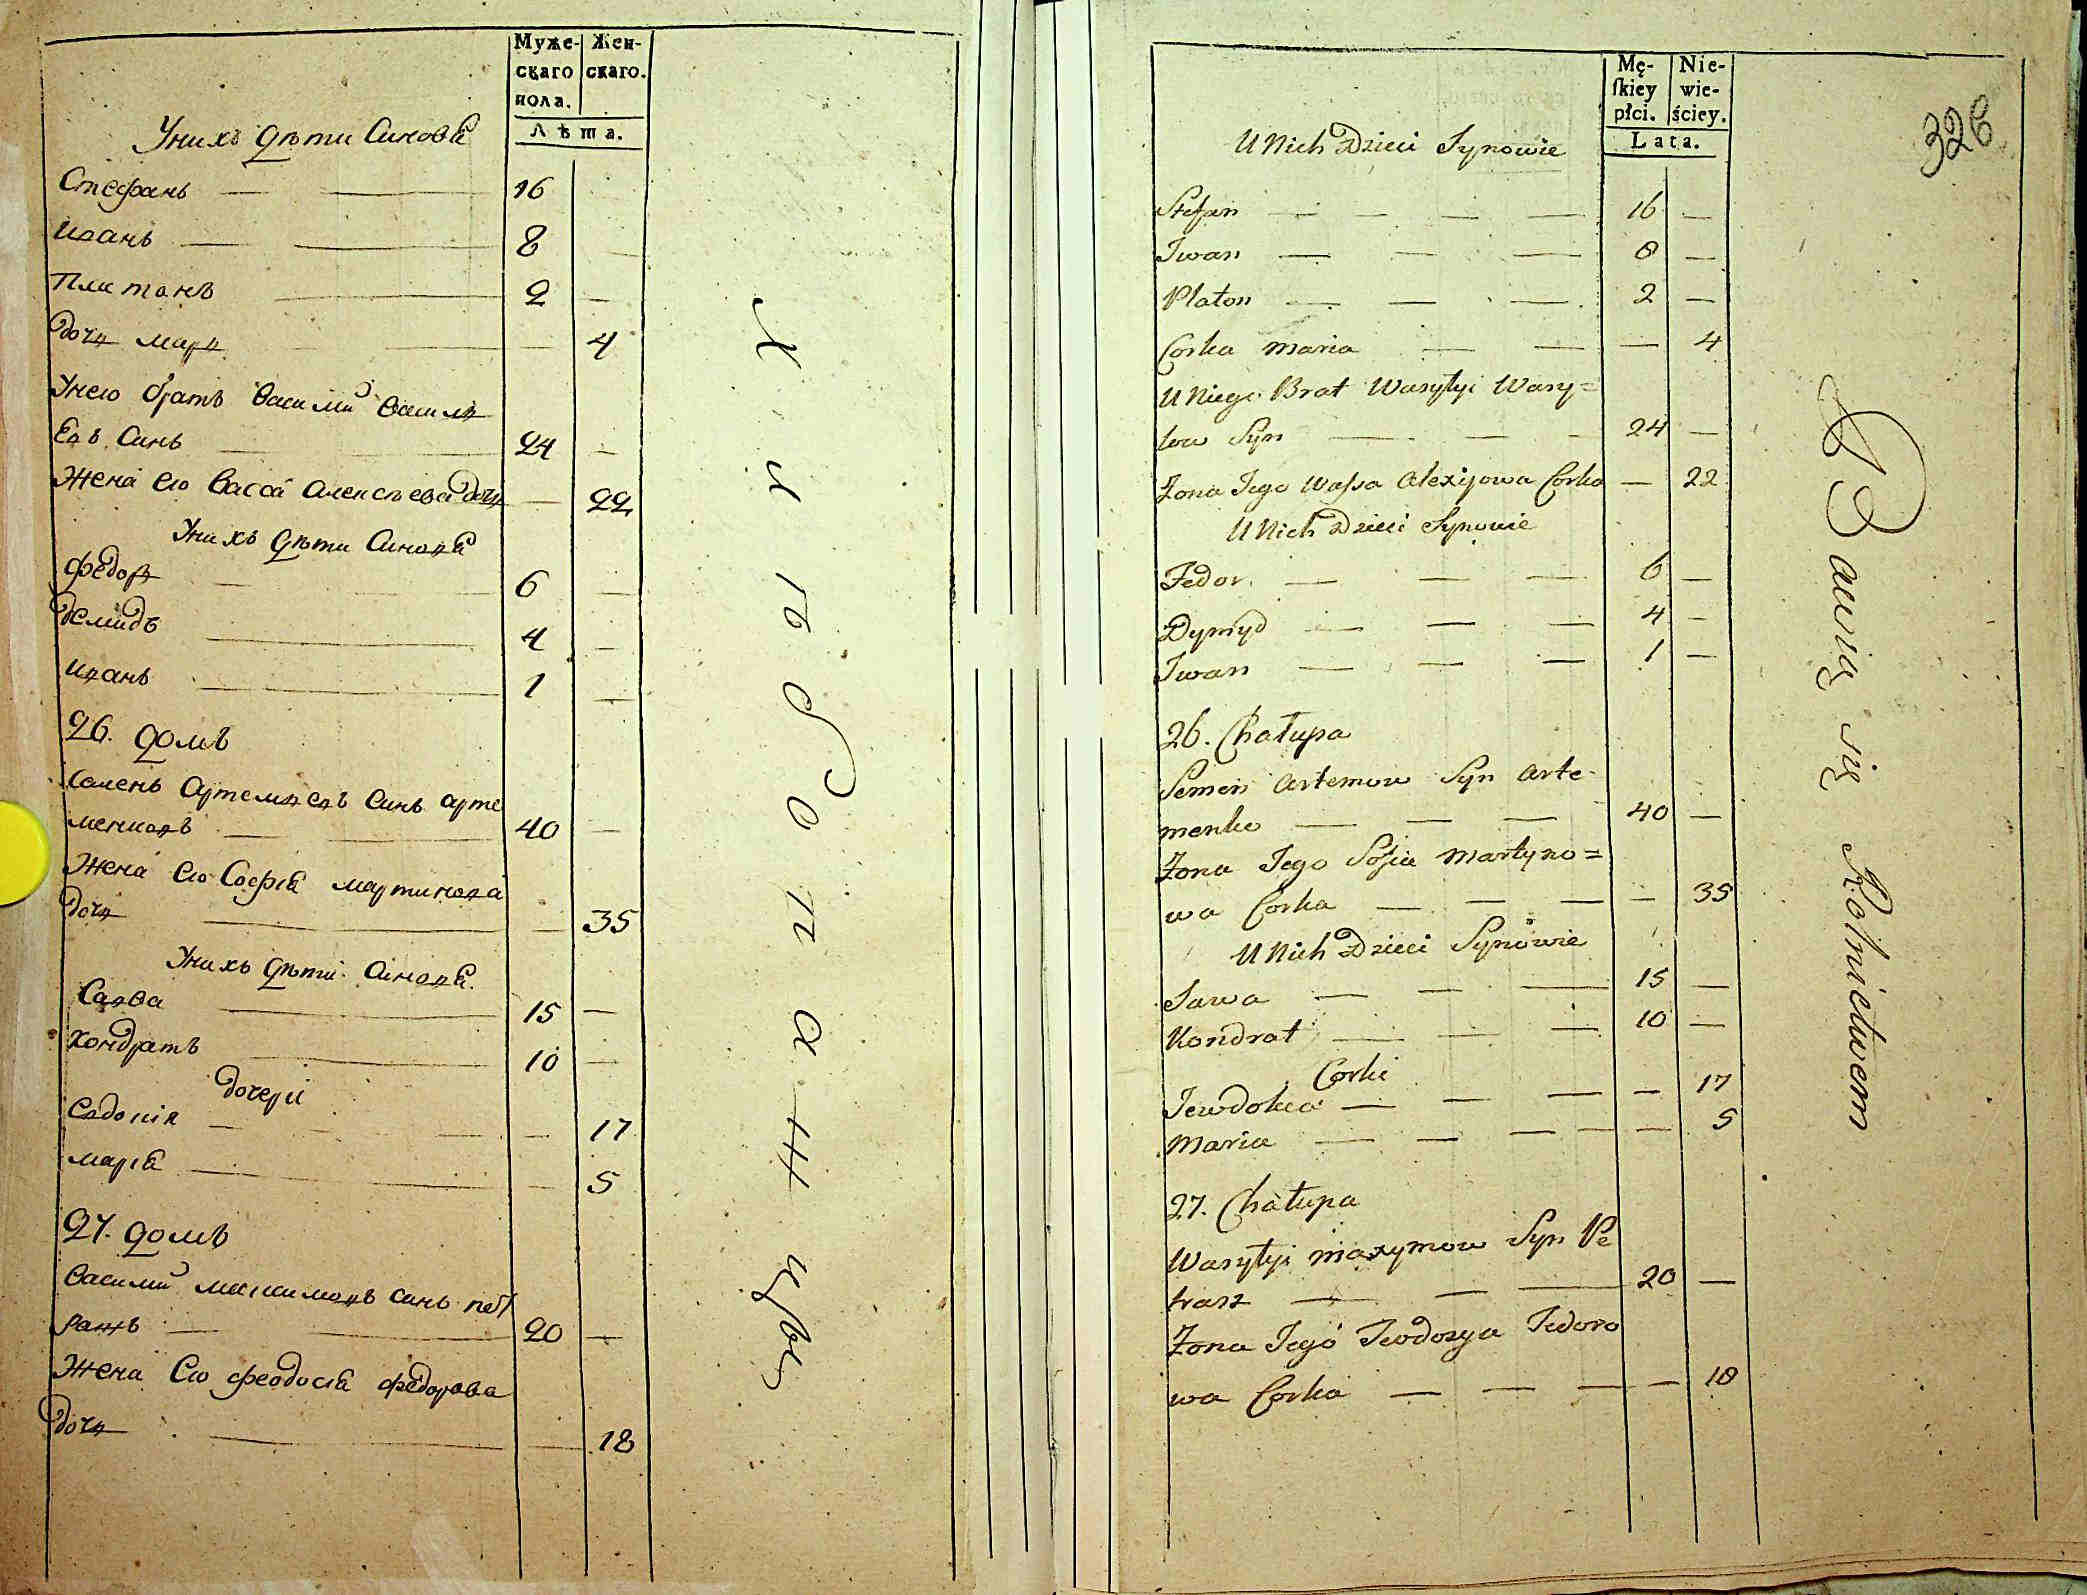 Муже-
скаго
пола.
Жен-
скаго.
Лѣта.
Унихъ дѣти Синовѣ
Стефанъ — — 16
Иванъ — — 8
Платонъ — 2 —
дочь мар — 4
Унего братъ Василий Василь
евъ Синъ — 24 —
Жена его Васса Алексѣева дочь — 22
Унихъ дѣти Синовѣ
Федор — 6 —
Демидъ — 4 —
Иванъ — 1 —
26. домъ
Семенъ Артемьевъ Синъ Арте
менковъ — 40 —
Жена его Софіа мартинова
дочь — — 35
Унихъ дѣти Синовѣ
Савва — 15 —
Кондратъ — 10 —
дочери
Евдокія — — 17
маріа — — 5
27. домъ
Василий максимовъ синъ пет
рашъ — 20 —
Жена Его феодосіа федорова
дочь — — 18
Хлѣбопашцы
Mę-
ſkiey
płci.
Nie-
wie-
ściey.
Lata.
326
U Nich Dzieci Synowie
Stefan — — — — 16 —
Iwan — — — 8 —
Platon — — — 2 —
Corka Maria — — — 4
U Niego Brat Wasylyi Wasy=
low Syn — — — 24 —
Zona Iego Waſsa Alexijowa Corka — 22
U Nich Dzieci Synowie
Fedor — — — 6 —
Dymyd — — — 4 —
Iwan — — — 1 —
26. Chałupa
Semen Artemow Syn Arte-
menko — — — 40 —
Zona Iego Sofia Martyno=
wa Corka — — — — 35
U Nich Dzieci Synowie
Sawa — — — 15 —
Kondrat — — — 10 —
Corki
Iewdokia — — — — 17
Maria — — — — — 5
27. Chałupa
Wasylyi Maxymow Syn Pe
trasz — — — 20 —
Zona Iego Teodozya Fedoro
wa Corka — — — — 18
Bawią się Rolnictwem